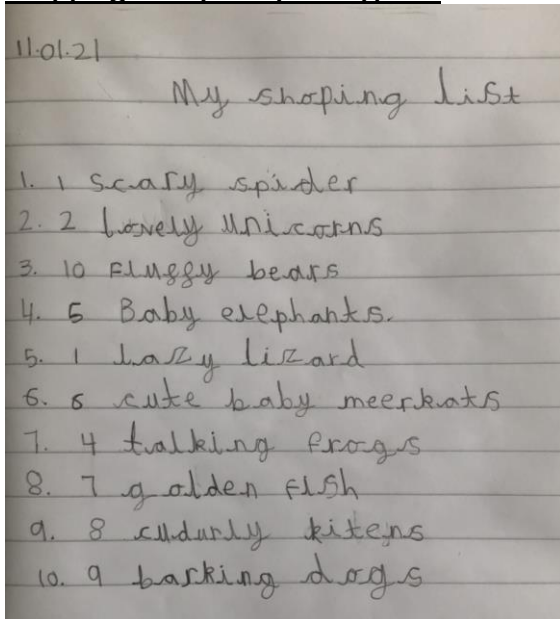 11.01.21
My shoping list
1. 1 scary spider
2. 2 lovely unicorns
3. 10 Fluffy bears
4. 5 Baby elephants.
5. 1 lazy lizard
6. 6 cute baby meerkats
7. 4 talking frogs
8. 7 golden fish
9. 8 cudurly kitens
10. 9 barking dogs